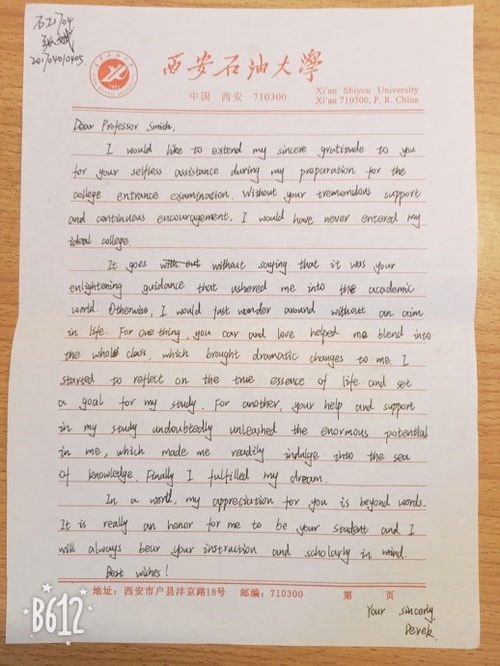 石工1704
201704010405
西安石油大學
中国 西安 710300
Xi'an Shiyou University
Xi'an 710300, P. R. China
Dear Professor Smith,
I would like to extend my sincere gratitude to you
for your selfless assistance during my preparation for the
college entrance examination. Without your tremendous support
and continuous encouragement, I would have never entered my
ideal college.
It goes with out without saying that it was your
enlightening guidance that ushered me into the academic
world. Otherwise, I would just wonder around without an aim
in life. For one thing, you car and love helped me blend into
the whole class, which brought dramatic changes to me. I
started to reflect on the true essence of life and set
a goal for my study. For another, your help and support
in my study undoubtedly unleashed the enormous potential
in me, which made me readily indulge into the sea
of knowledge. Finally I fulfilled my dream.
In a word, my appreciation for you is beyond words.
It is really an honor for me to be your student and I
will always bear your instruction and scholarly in mind.
Best wishes!
地址：西安市户县沣京路18号 邮编：710300 第 页
Your sincerely
Derek
B612